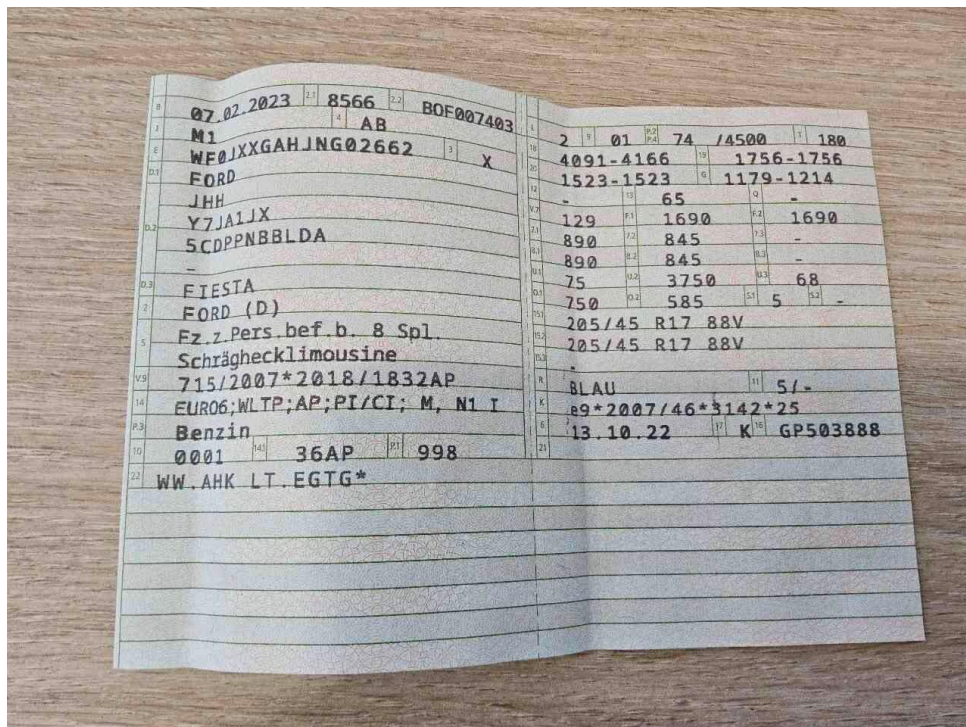 B 07.02.2023 2.1 8566 2.2 BOF007403
J M1 4 AB
E WF0JXXGAHJNG02662 3 X
D.1 FORD
JHH
D.2 Y7JA1JX
5CDPPNBBLDA
-
D.3 FIESTA
2 FORD (D)
5 Fz.z.Pers.bef.b. 8 Spl.
Schräghecklimousine
V.9 715/2007*2018/1832AP
14 EURO6;WLTP;AP;PI/CI; M, N1 I
P.3 Benzin
10 0001 14.1 36AP P.1 998
22 WW.AHK LT.EGTG*
L 2 9 01 P.2 P.4 74 /4500 T 180
18 4091-4166 19 1756-1756
20 1523-1523 G 1179-1214
12 - 13 65 Q -
V.7 129 F.1 1690 F.2 1690
7.1 890 7.2 845 7.3 -
8.1 890 8.2 845 8.3 -
U.1 75 U.2 3750 U.3 68
O.1 750 O.2 585 S.1 5 S.2 -
15.1 205/45 R17 88V
15.2 205/45 R17 88V
15.3 -
R BLAU 11 5/-
K e9*2007/46*3142*25
6 13.10.22 17 K 16 GP503888
21